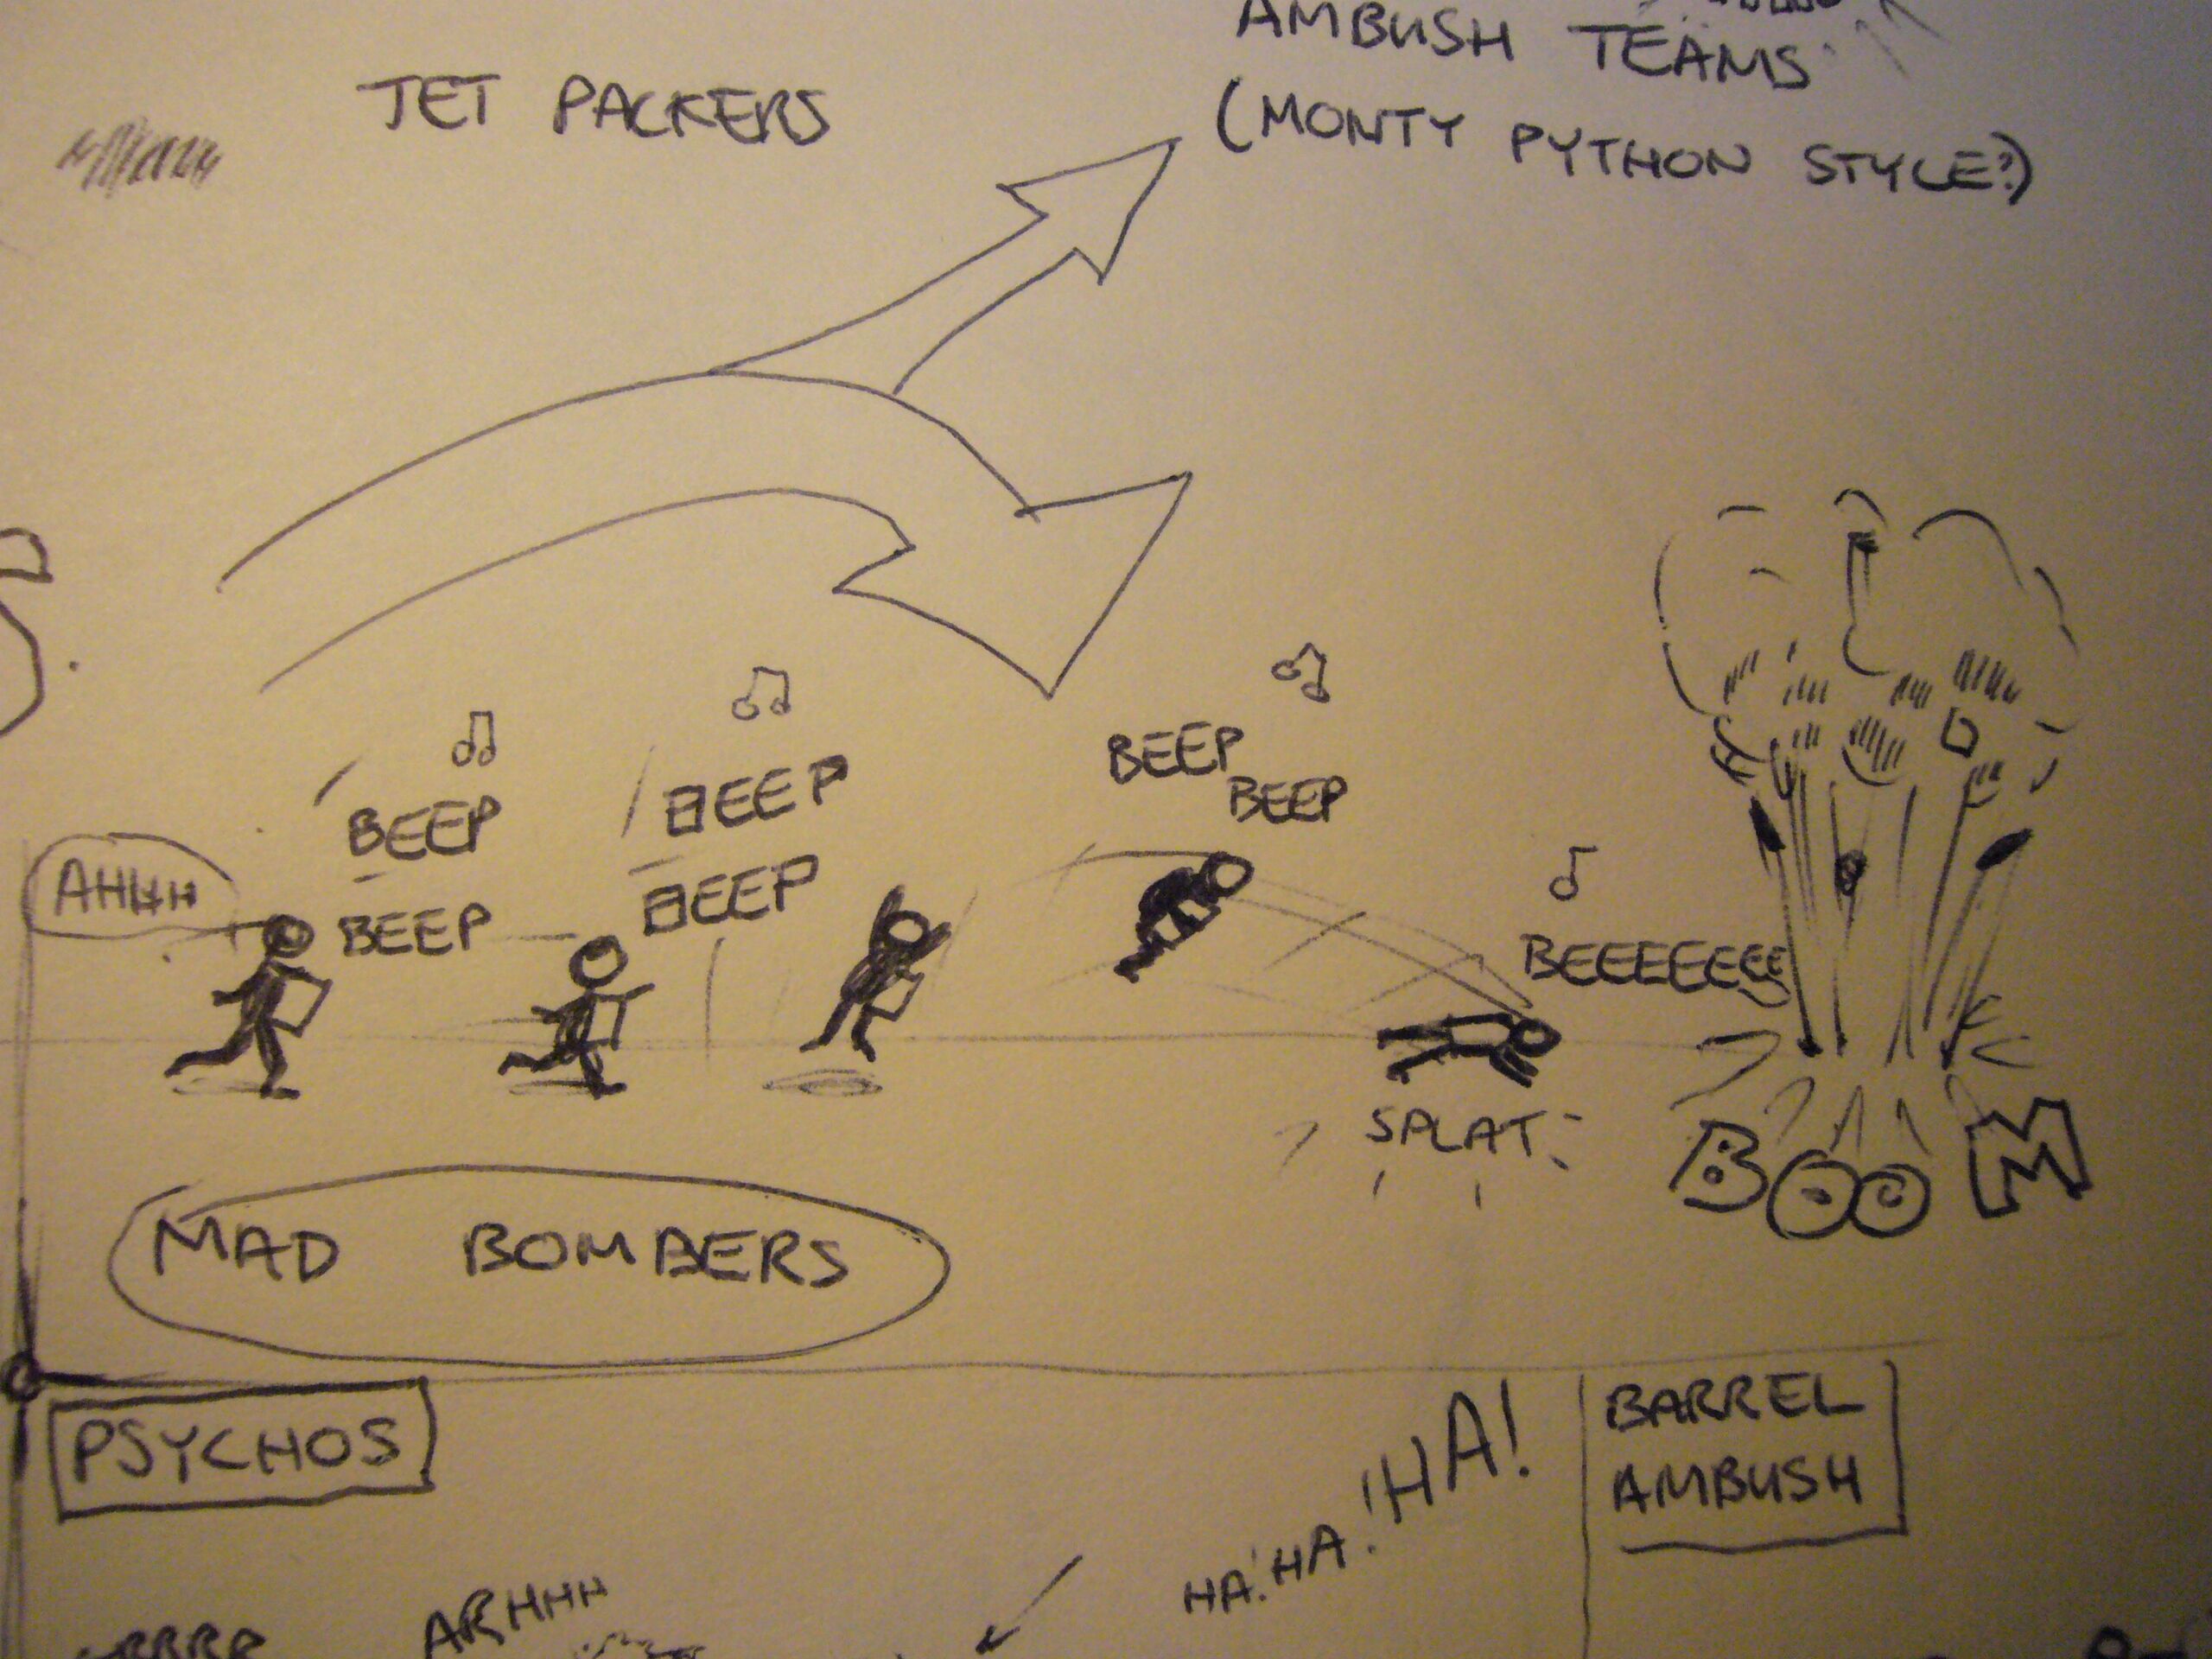 AMBUSH TEAMS
(MONTY PYTHON STYLE?)
JET PACKERS
BEEP
BEEP
BEEP
BEEP
BEEP
BEEP
AHHH
BEEEEEEE
SPLAT
BOOM
MAD BOMBERS
PSYCHOS
BARREL
AMBUSH
HA! HA! HA!
ARHHH